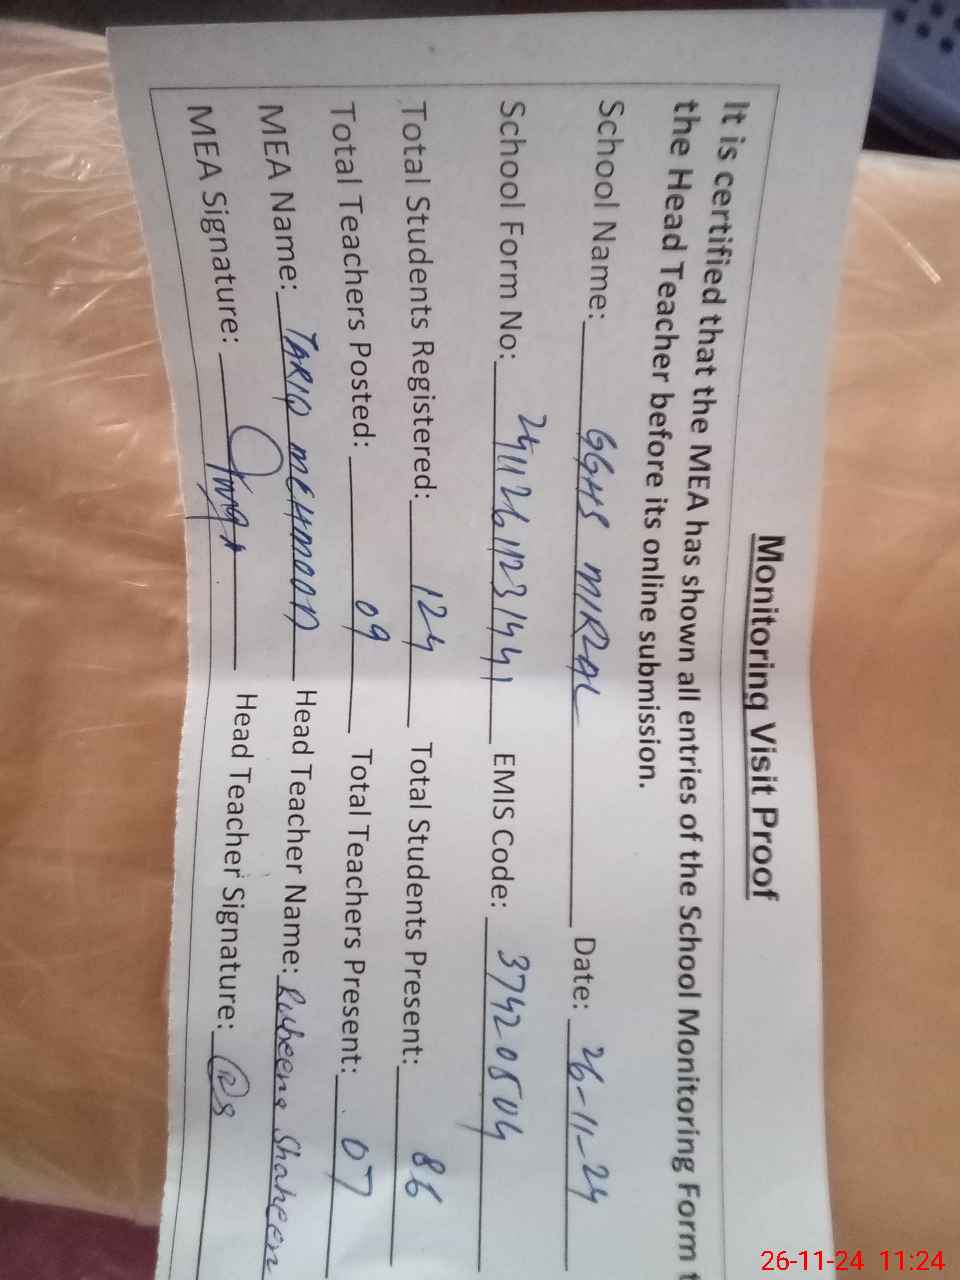 Monitoring Visit Proof
It is certified that the MEA has shown all entries of the School Monitoring Form t
the Head Teacher before its online submission.
School Name: GGHS MIRZAL Date: 26-11-24
School Form No: 24112611231441 EMIS Code: 37420504
Total Students Registered: 124 Total Students Present: 86
Total Teachers Posted: 09 Total Teachers Present: 07
MEA Name: TARIQ MEHMOOD Head Teacher Name: Rubeena Shaheen
MEA Signature: Head Teacher Signature: RS
26-11-24 11:24